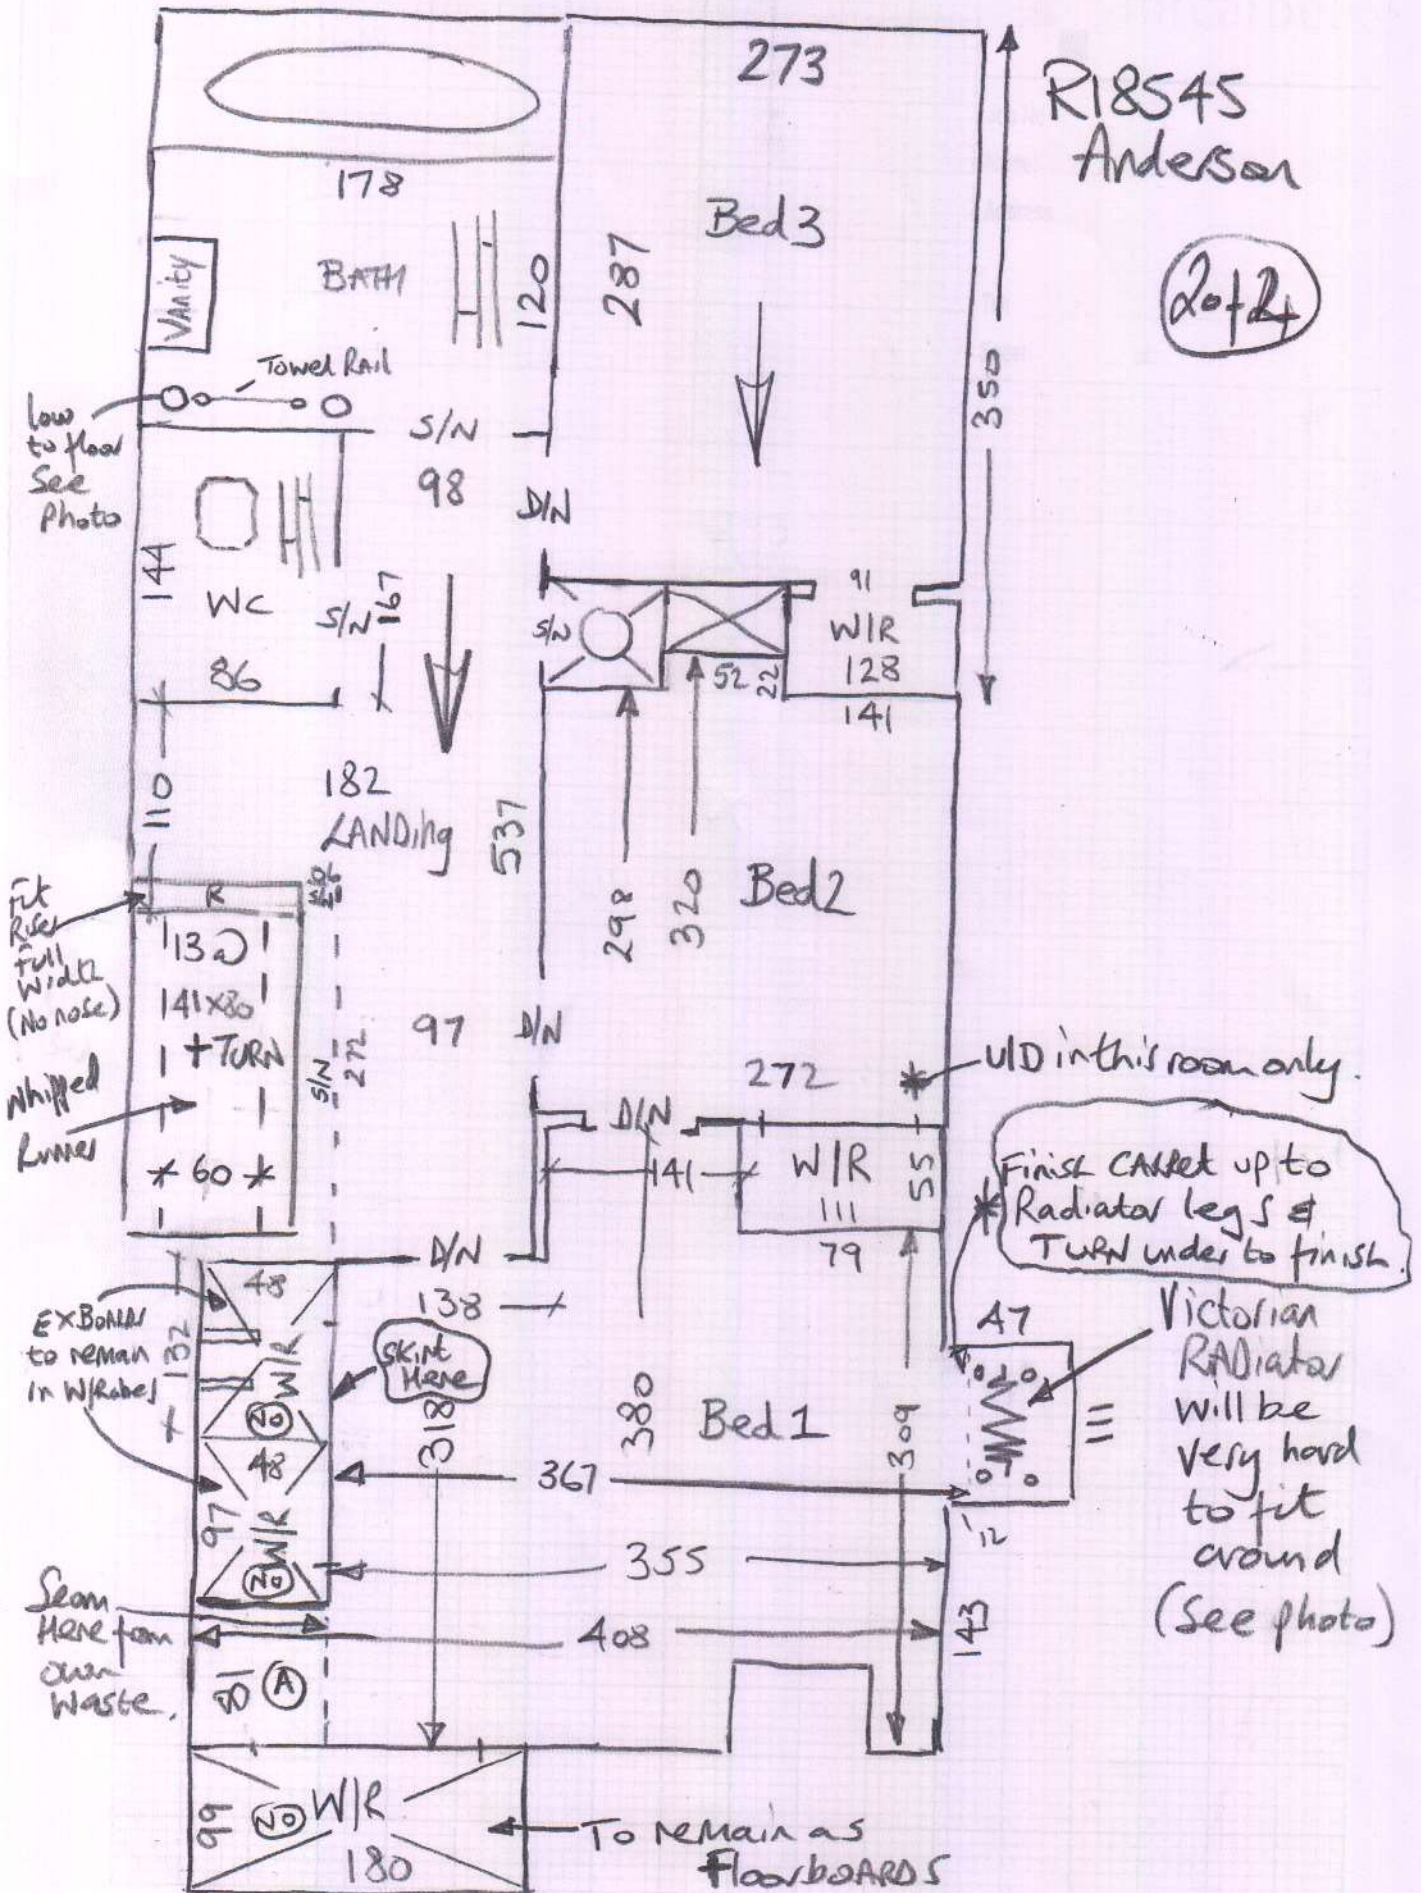 273
R18545
Anderson
178
Bed 3
Vanity
BATH
120
287
2 of 2
Towel RAIL
350
low
to floor
See
Photo
S/N
98
D/N
144
WC
S/N
167
S/N
91
W/R
128
86
52
22
141
110
182
LANDing
537
298
320
Bed 2
Fit
Riser
Full
Width
(No nose)
R
13a)
141x80
+ TURN
97
D/N
S/N
272
Whipped
Runner
60
272
* U/D in this room only.
D/N
141
W/R
111
55
79
Finish CARPet up to
* Radiator legs &
TURN under to finish.
D/N
138
48
EX BOARDS
to remain
in W/Robes
132
W/R
NO
Skirt
Here
47
Victorian
RADiator
will be
very hard
to fit
around
(See photo)
111
318
380
Bed 1
309
48
97
W/R
NO
367
12
355
Seam
Here from
own
Waste.
408
143
81
A
99
NO
W/R
180
To remain as
FloorbOARDS